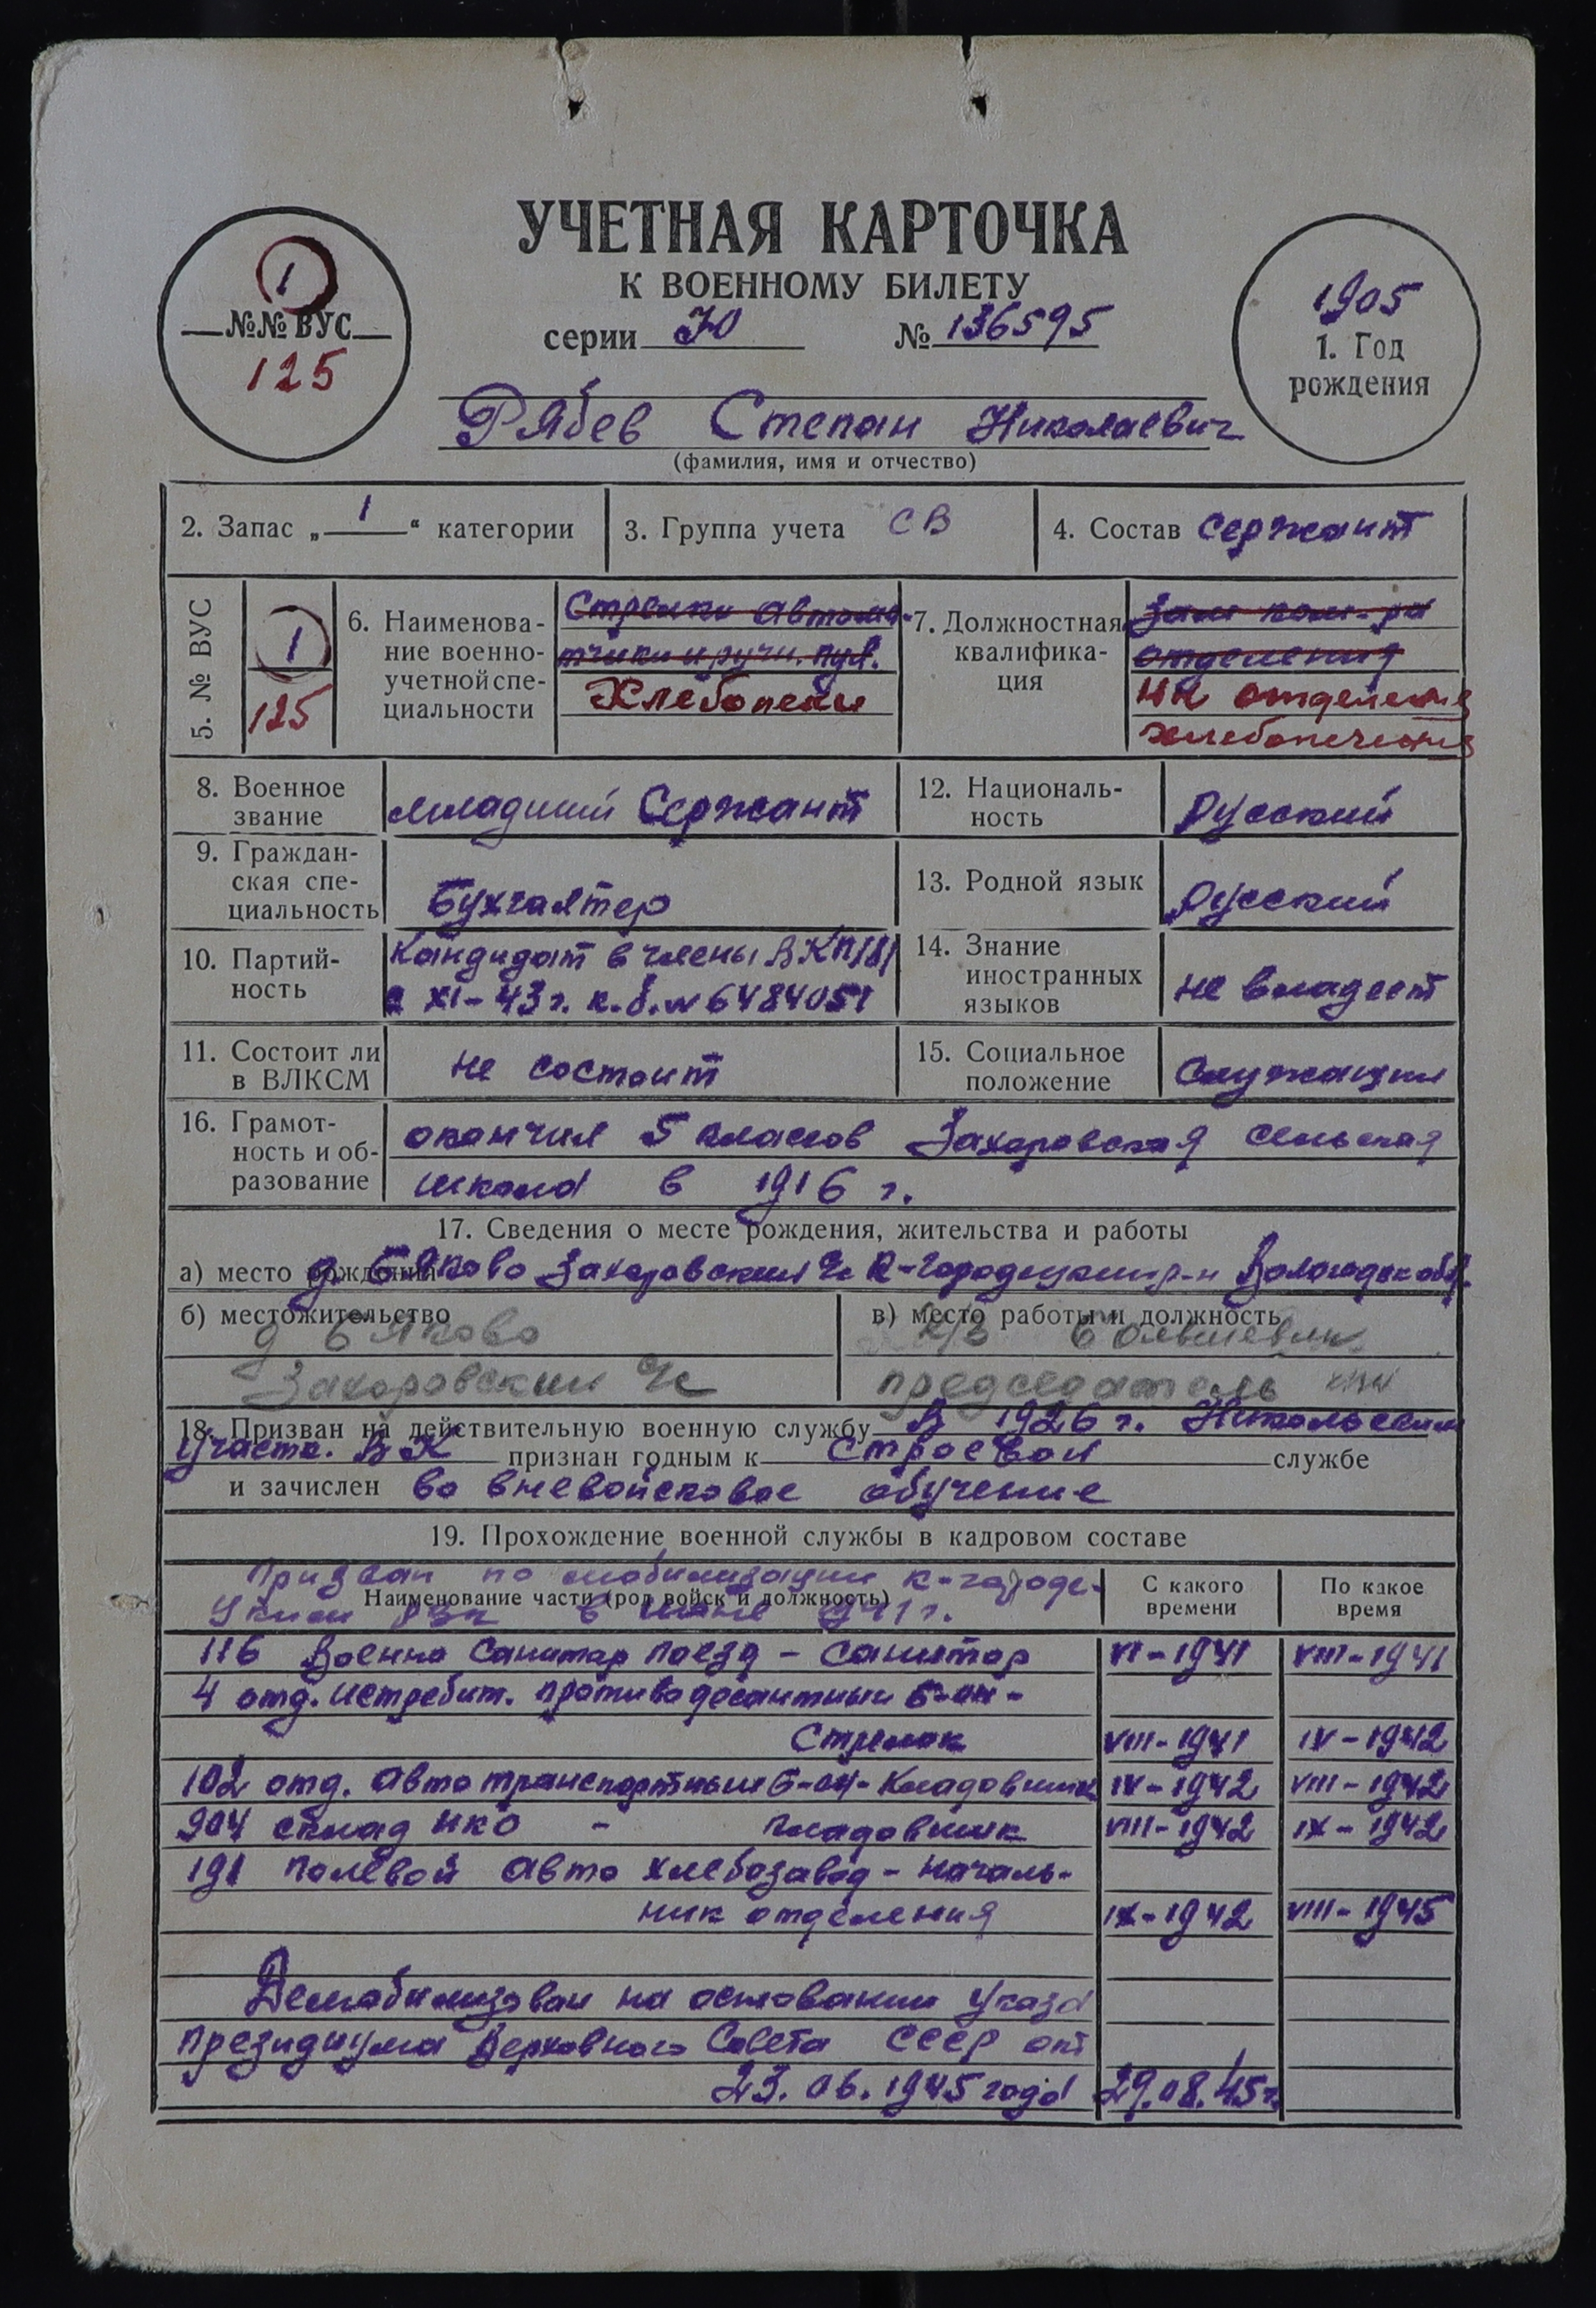 УЧЕТНАЯ КАРТОЧКА
К ВОЕННОМУ БИЛЕТУ
серии Ю № 136595
1
№№ ВУС
125
1905
1. Год
рождения
Рябев Степан Николаевич
(фамилия, имя и отчество)
2. Запас „ 1 “ категории
3. Группа учета СВ
4. Состав Сержант
5. № ВУС
1
125
6. Наименова-
ние военно-
учетной спе-
циальности
Стрелки автома-
тчики и ручн. пул.
Хлебопеки
7. Должностная
квалифика-
ция
Зам ком-ра
отделения
нк отделения
хлебопечения
8. Военное
звание
младший Сержант
12. Националь-
ность
Русский
9. Граждан-
ская спе-
циальность
Бухгалтер
13. Родной язык
Русский
10. Партий-
ность
Кандидат в члены ВКП/б/
с XI-43 г. к.б. № 6484051
14. Знание
иностранных
языков
не владеет
11. Состоит ли
в ВЛКСМ
не состоит
15. Социальное
положение
Служащий
16. Грамот-
ность и об-
разование
окончил 5 классов Захаровская сельская
школа в 1916 г.
17. Сведения о месте рождения, жительства и работы
а) место рождения д. Бяково Захаровский с/с К-Городецкий р-н Вологодск обл.
б) местожительство
д Бяково
Захаровский с/с
в) место работы и должность
к/з Большевик
председатель
18. Призван на действительную военную службу В 1926 г. Никольским
участк. ВК признан годным к строевой службе
и зачислен во вневойсковое обучение
19. Прохождение военной службы в кадровом составе
Призван по мобилизации К-Городе-
цким РВК в июне 1941 г.
Наименование части (род войск и должность)
С какого
времени
По какое
время
116 Военно Санитар поезд - Санитар VI-1941 VIII-1941
4 отд. истребит. противодесантный б-он -
Стрелок VIII-1941 IV-1942
102 отд. автотранспортный б-он - Кладовщик IV-1942 VIII-1942
904 склад НКО - кладовщик VIII-1942 IX-1942
191 полевой авто хлебозавод - началь-
ник отделения IX-1942 VIII-1945
Демобилизован на основании Указа
Президиума Верховного Совета СССР от
23.06.1945 года 29.08.45 г.